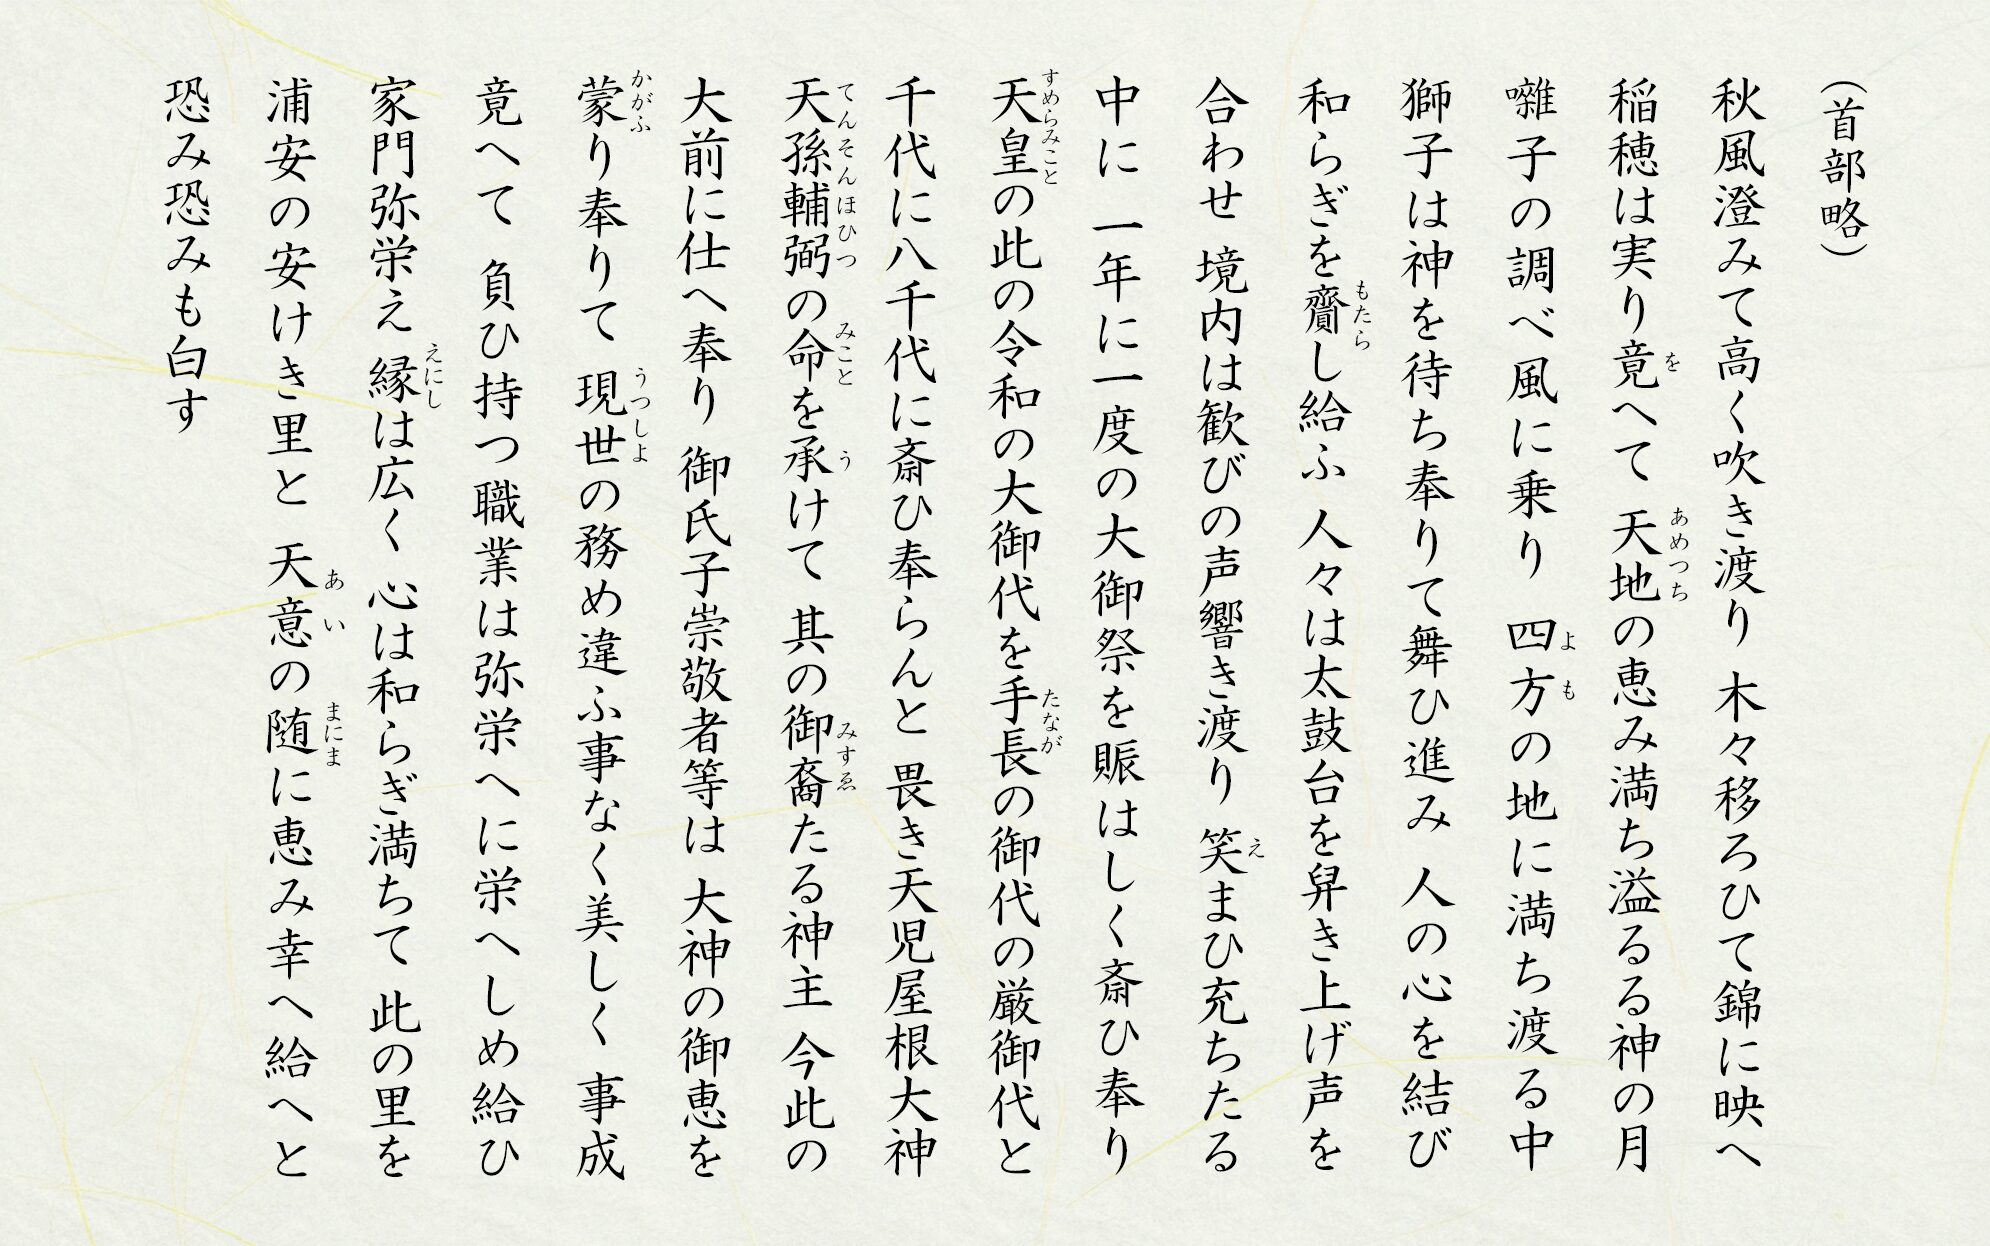 （首部略）
秋風澄みて高く吹き渡り 木々移ろひて錦に映へ
稲穂は実り竟へて 天地の恵み満ち溢るる神の月
囃子の調べ風に乗り 四方の地に満ち渡る中
獅子は神を待ち奉りて舞ひ進み 人の心を結び
和らぎを齎し給ふ 人々は太鼓台を舁き上げ声を
合わせ 境内は歓びの声響き渡り 笑まひ充ちたる
中に 一年に一度の大御祭を賑はしく斎ひ奉り
天皇の此の令和の大御代を手長の御代の厳御代と
千代に八千代に斎ひ奉らんと 畏き天児屋根大神
天孫輔弼の命を承けて 其の御裔たる神主 今此の
大前に仕へ奉り 御氏子崇敬者等は 大神の御恵を
蒙り奉りて 現世の務め違ふ事なく美しく 事成
竟へて 負ひ持つ職業は弥栄へに栄へしめ給ひ
家門弥栄え 縁は広く 心は和らぎ満ちて 此の里を
浦安の安けき里と 天意の随に恵み幸へ給へと
恐み恐みも白す